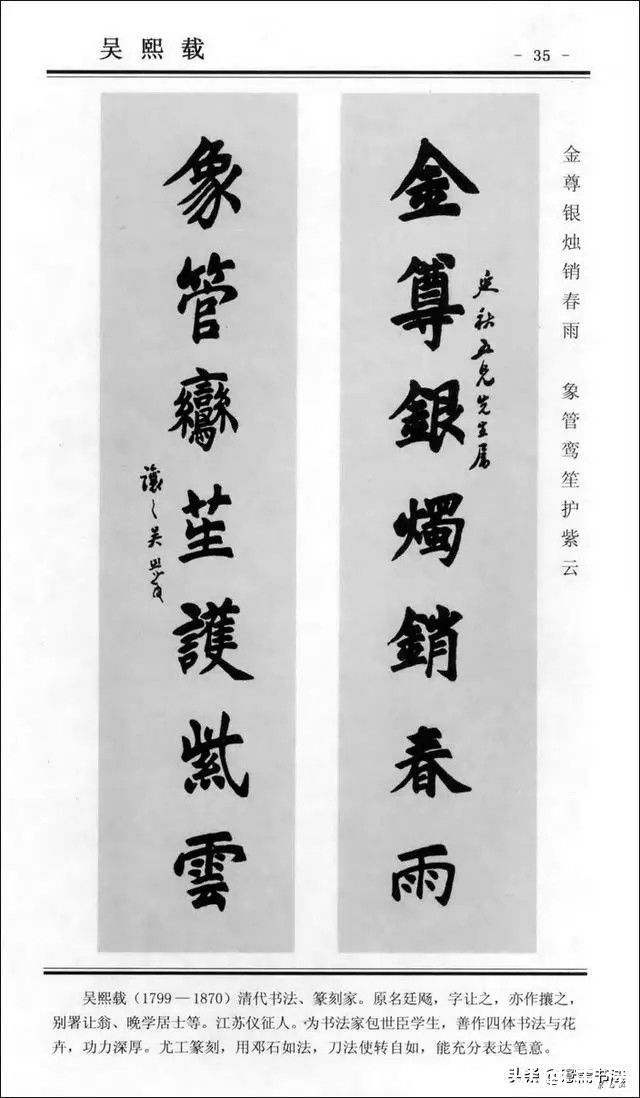 吴熙载
- 35 -
金尊银烛销春雨 象管鸾笙护紫云
金尊銀燭銷春雨
延秋五兄先生属
象管鸞笙護紫雲
讓之吴熙載
吴熙载（1799—1870）清代书法、篆刻家。原名廷飏，字让之，亦作攘之，
别署让翁、晚学居士等。江苏仪征人。为书法家包世臣学生，善作四体书法与花
卉，功力深厚。尤工篆刻，用邓石如法，刀法使转自如，能充分表达笔意。
头条